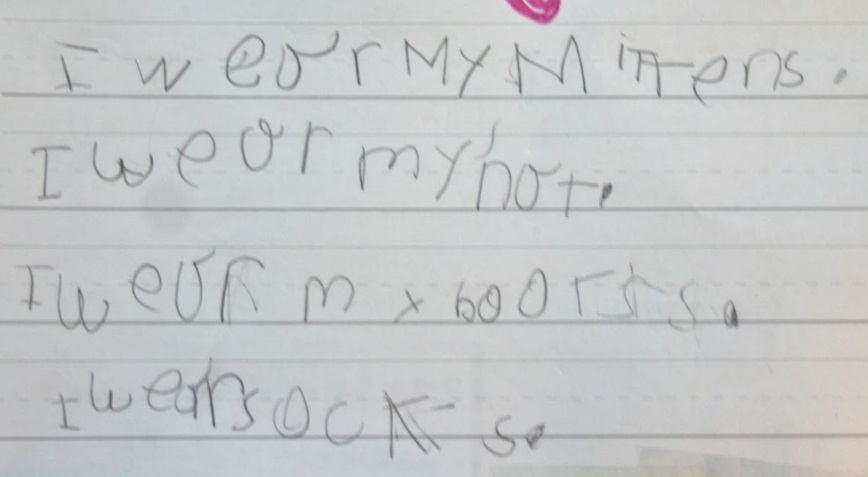 I wear My Mittens.
I wear my hat.
I wear m y boots.
I wear socks.